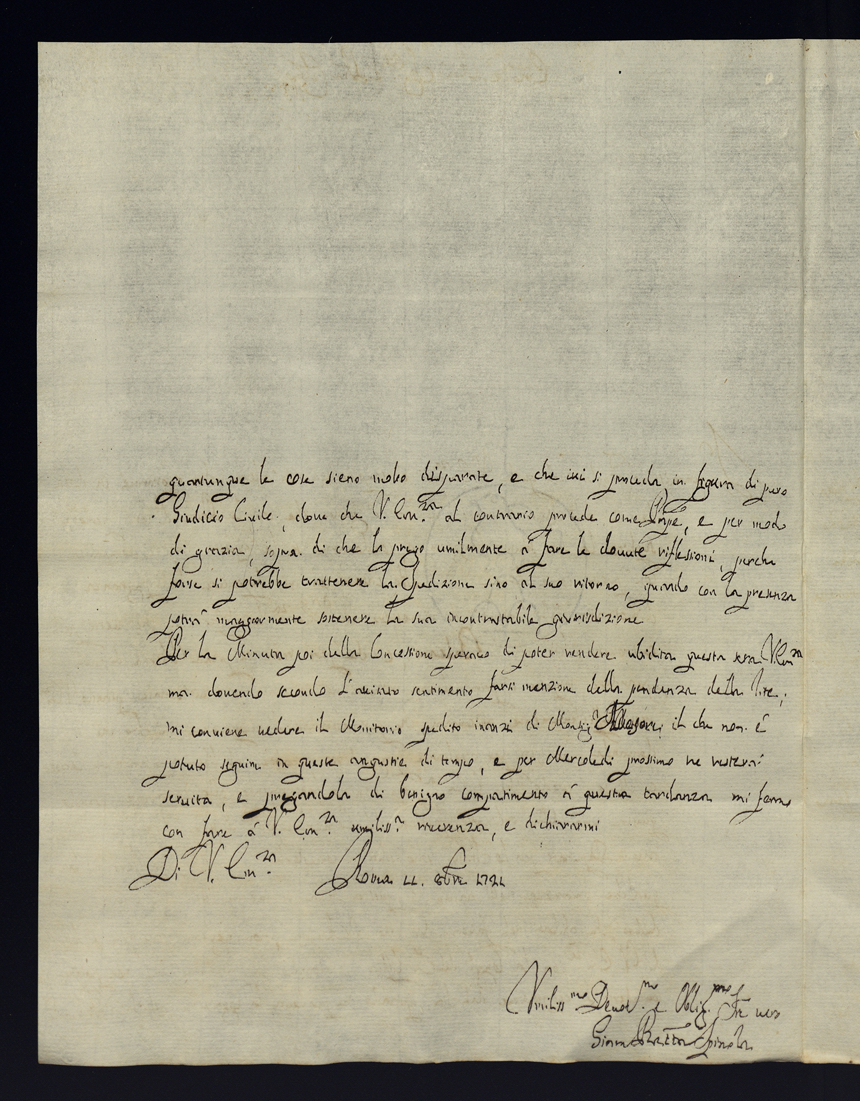 quantunque le cose sieno molto disparate, e che ivi si proceda in figura di puro
Giudicio Civile, dove che V. Em.za al contrario procede come, e per modo
di grazia, sopra di che la prego umilmente à fare le dovute riflessioni, perche
forse si potrebbe trattenere la spedizione sino al suo ritorno, quando con la presenza
potrà maggiormente sostenere la sua incontrastabile giurisdizione
Per la Minuta poi della Concessione speravo di poter rendere ubidita questa sera V. Em.za
ma dovendo secondo l'avisato sentimento farsi menzione della pendenza della lite,
mi conviene vedere il Monitorio spedito inanzi di Monsig.r il che non è
potuto seguire in queste angustie di tempo, e per Mercoledi prossimo ne resterà
servita, e pregandola di benigno compatimento à questa tardanza mi fermo
con fare à V. Em.za umiliss.a riverenza, e dichiararmi
Di V. Em.za Roma 11. 8bre 1721
Umiliss.mo Devot.mo e Oblig.mo Se.re vero
Giam Batta Spinola